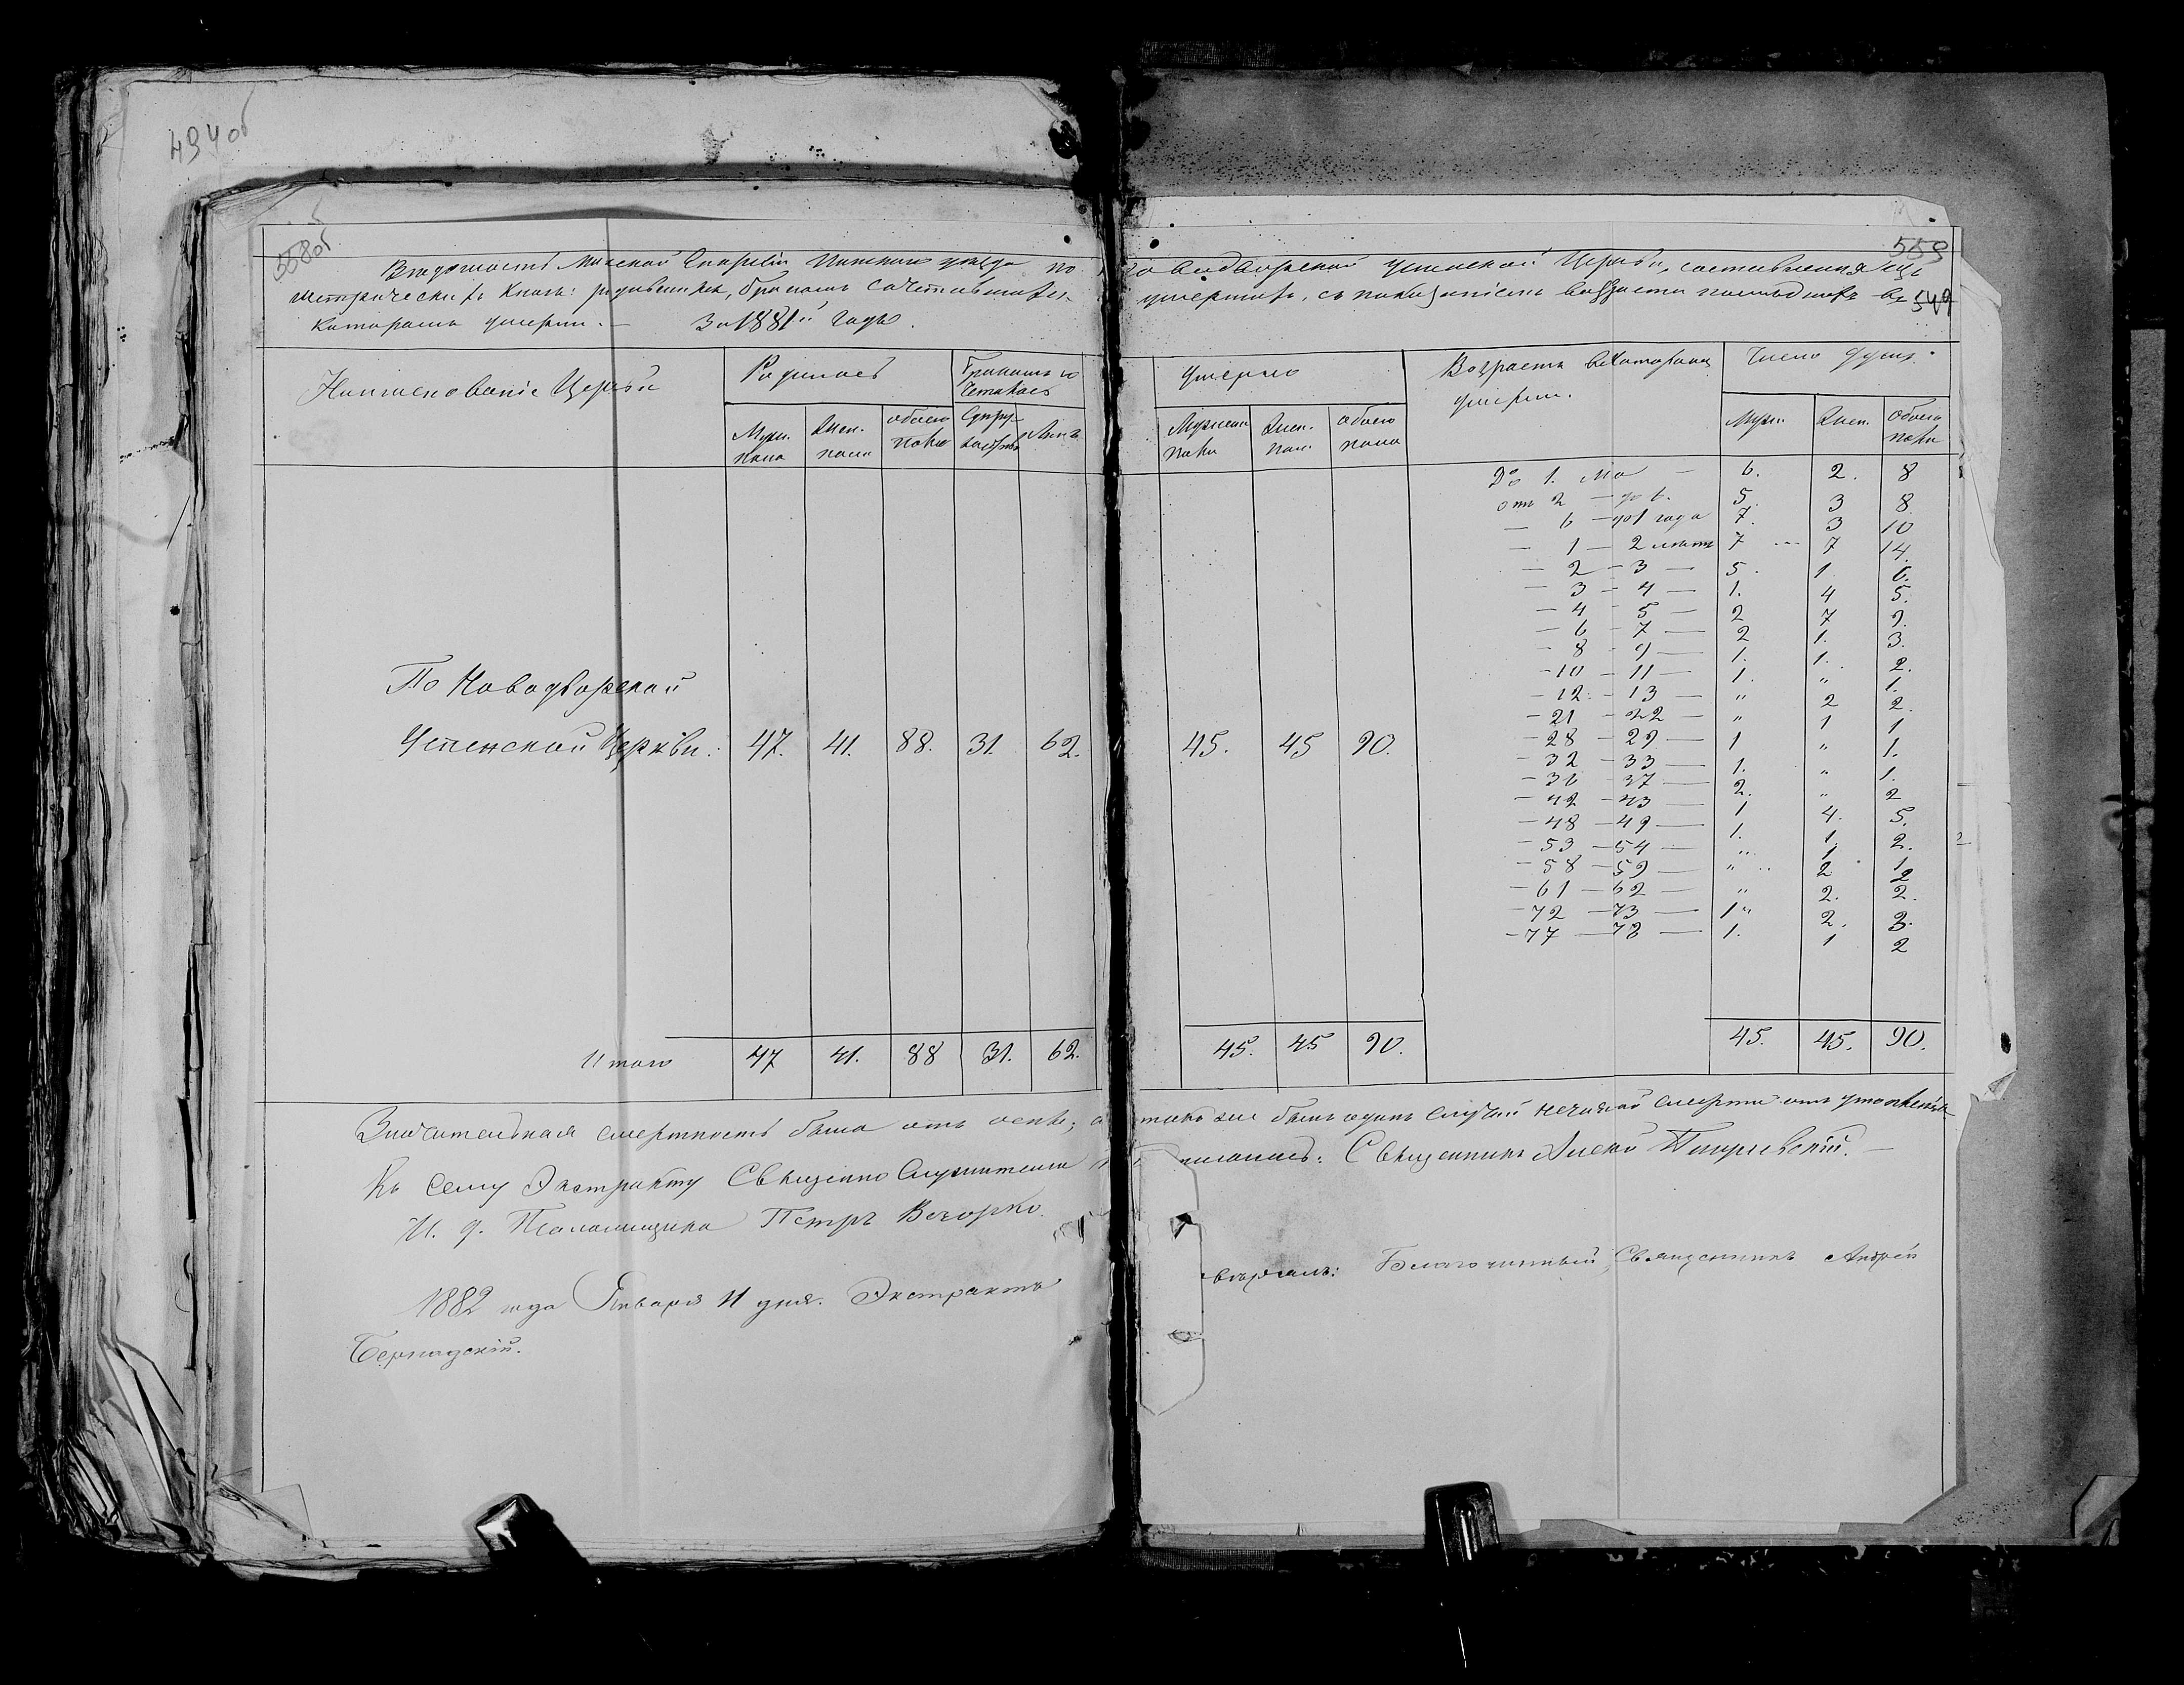 494об
558об.
559
549
Ведомость Минской Епархіи Пинскаго уезда по Новодворской Успенской Церкви, составленная изъ
метрическихъ книгъ: родившихся, бракомъ сочетавшихся умершихъ, съ показаніемъ возраста последнихъ въ
которомъ умерли. — За 1881й годъ.
Наименованіе Церкви
Родилось
Бракомъ со
четалось
Умерло
Возрастъ въ которомъ
умерли.
Число душъ.
Муж. пола
Жен. пола
обоего пола
Супру-
жествъ
Лицъ
Мужеска пола
Жен. пол.
обоего пола
Муж.
Жен.
Обоего пола
До 1. м-а — 6. 2. 8
отъ 2 — до 6. 5. 3 8.
— 6 — до 1 года 7. 3 10
— 1 — 2 летъ 7 7 14.
— 2 — 3 — 5. 1 6.
— 3 — 4 — 1. 4 5.
— 4 — 5 — 2 7 9.
— 6 — 7 — 2 1. 3.
— 8 — 9 — 1. 1. 2.
— 10 — 11 — 1. " 1.
— 12 — 13 — " 2 2.
— 21 — 22 — " 1 1
— 28 — 29 — 1 " 1.
— 32 — 33 — 1. " 1.
— 36 — 37 — 2. " 2
— 42 — 43 — 1 4. 5.
— 48 — 49 — 1. 1. 2.
— 53 — 54 — " 1 1
— 58 — 59 — " 2 2
— 61 — 62 — " 2. 2.
— 72 — 73 — 1" 2. 3.
— 77 — 78 — 1. 1 2
По Новодворской
Успенской Церкви: 47. 41. 88. 31. 62. 45. 45 90.
Итого 47 41. 88 31. 62. 45. 45 90. 45. 45. 90.
Значительная смертность была отъ оспы; а также былъ одинъ случай нечаяной смерти отъ утопленія
Къ сему Экстракту Священно Служители подписались: Священникъ
И. д. Псаломщика Петръ Вечорко.
1882 года Января 11 дня. Экстрактъ сверялъ: Благочинный, Священникъ Андрей
Бернадскій.